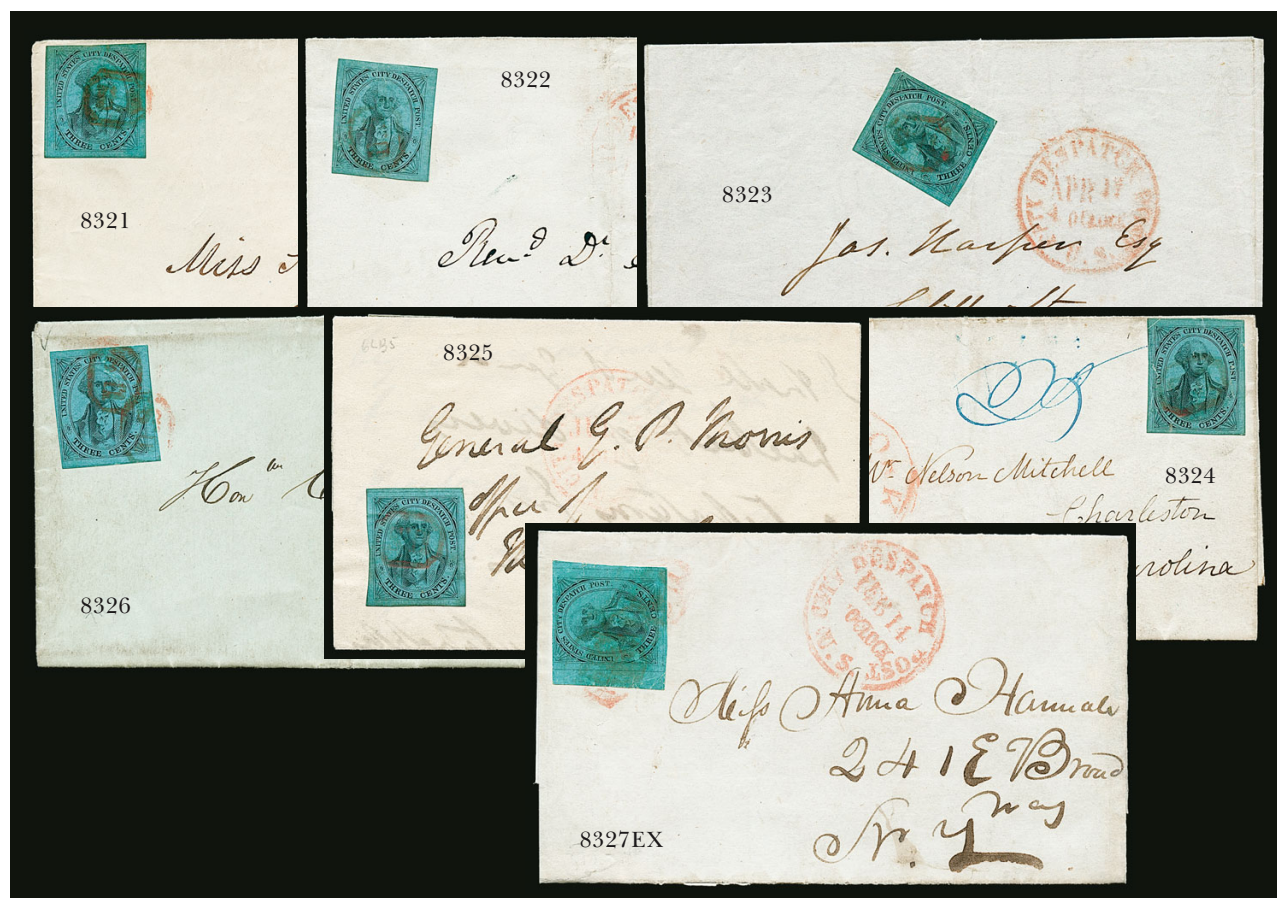 UNITED STATES CITY DESPATCH POST.
THREE CENTS
8321
Miss
UNITED STATES CITY DESPATCH POST.
THREE CENTS
8322
Revd Dr
UNITED STATES CITY DESPATCH POST.
THREE CENTS
8323
CITY DESPATCH POST
APR 17
4 O'CLOCK
U.S.
Jas. Harper Esq
UNITED STATES CITY DESPATCH POST.
THREE CENTS
8326
Hon
8325
General G. P. Morris
UNITED STATES CITY DESPATCH POST.
THREE CENTS
UNITED STATES CITY DESPATCH POST.
THREE CENTS
8324
Nelson Mitchell
Charleston
rolina
UNITED STATES CITY DESPATCH POST.
THREE CENTS
U.S. CITY DESPATCH POST
FEB 14
O'CLOCK
Miss Anna
241 E Broad
way
N. Y
8327EX